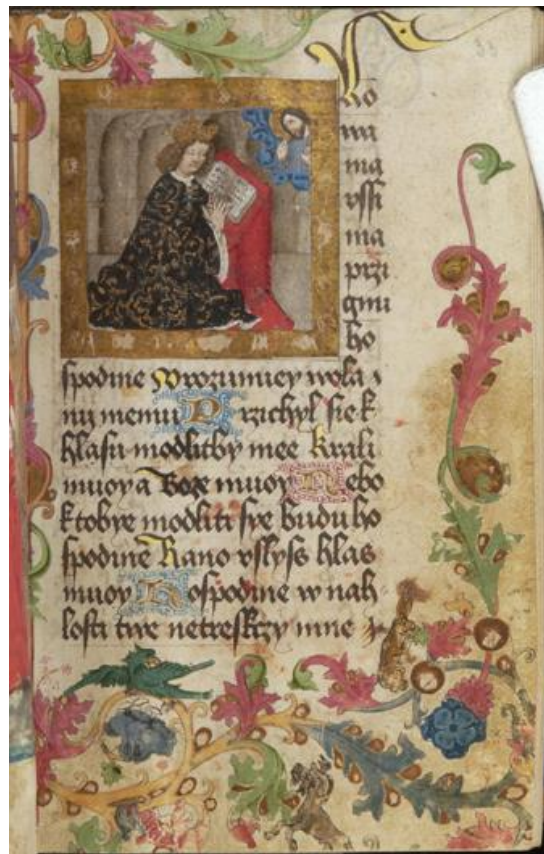 Slo
wa
ma
vssi
ma
przi
gmi
ho
spodine Wrozumiey wola
nij memu Przichyl sie k
hlasu modlitby mee Krali
muoy a Boze muoy Nebo
k tobye modliti sye budu ho
spodine Rano vslyss hlas
muoy Hospodine w nah
losti twe netreskzy mne